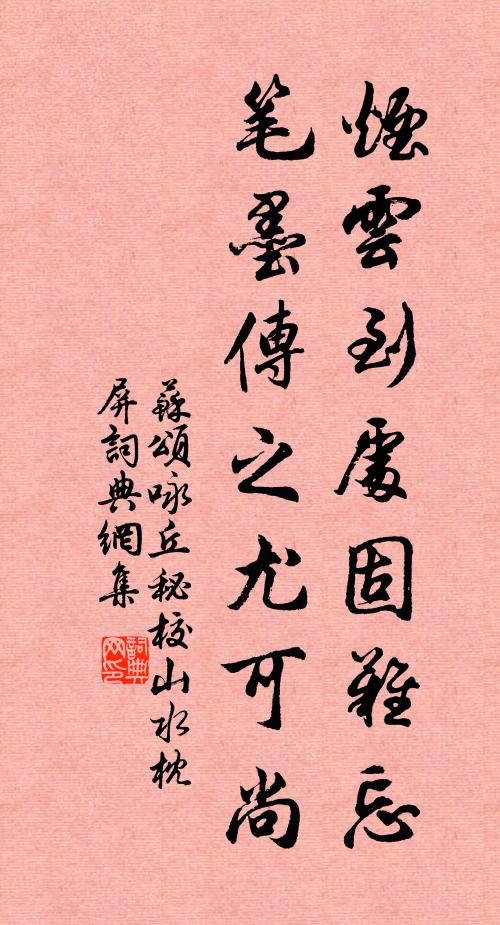 煙雲到處固難忘
笔墨傳之尤可尚
蘇頌咏丘秘校山水枕
屏詞典網集
詞典
网印